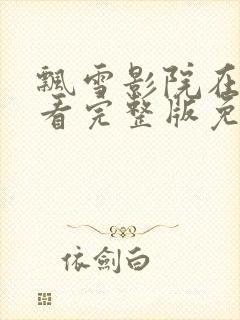 飘雪影院在
看完整版免
依劍白